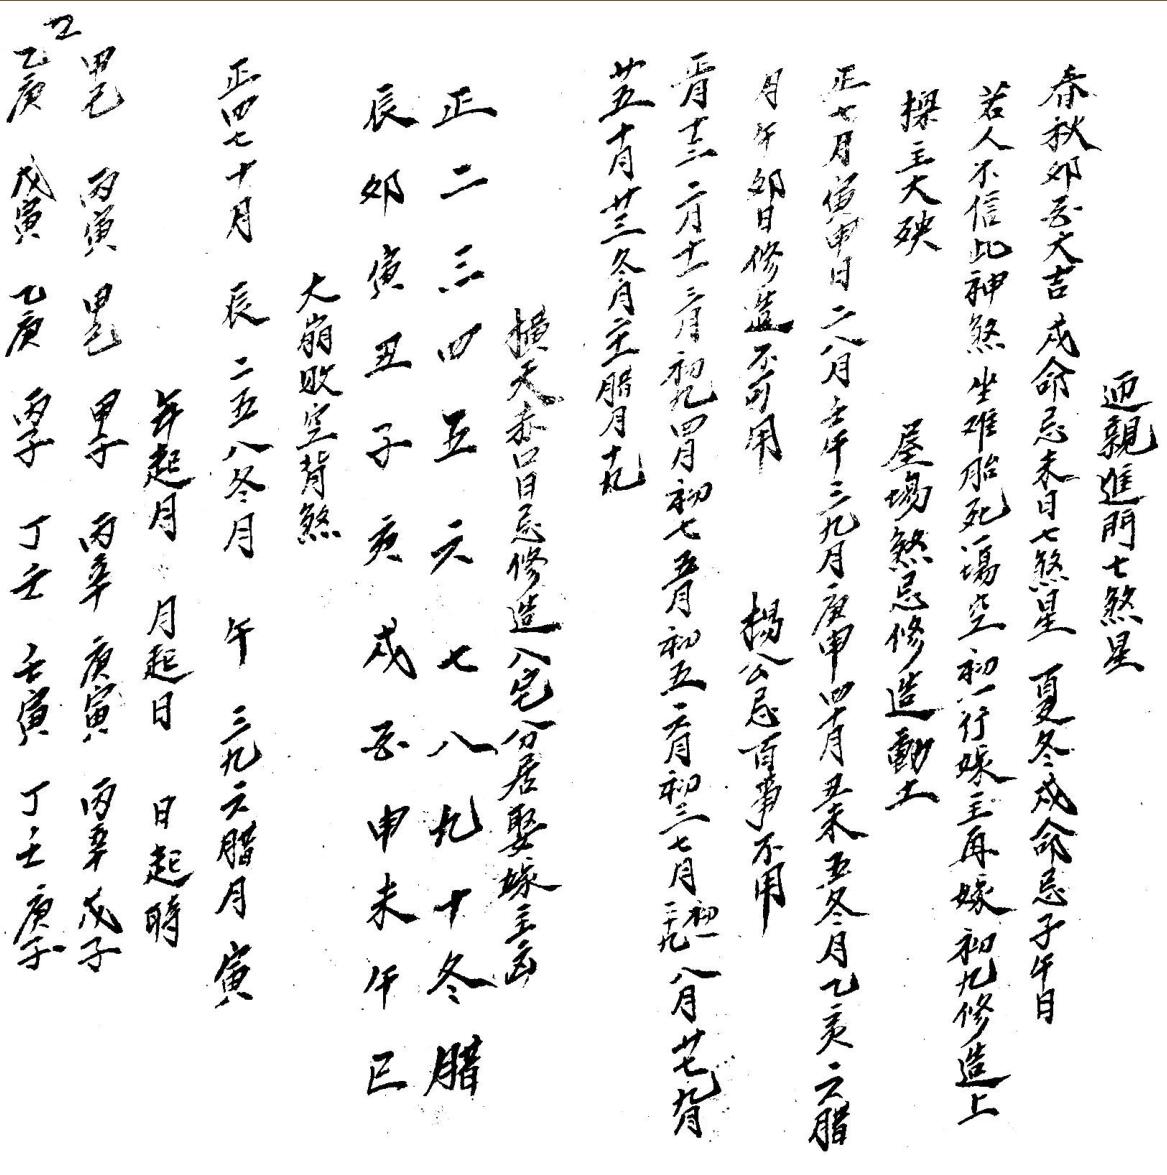 迎親進門七煞星
春秋卯酉大吉 戌命忌未日七煞星 夏冬戌命忌子午日
若人不信此神煞 坐难胎死一塲空 初一行嫁主再嫁 初九修造上
樑主大殃 屋塲煞忌修造動土
正七月寅申日 二八月壬午 三九月庚申 四十月丑未 五冬月乙亥 六腊
月午卯日修造不可用 楊公忌百事不用
正月十三 二月十一 三月初九 四月初七 五月初五 六月初三 七月初一二十九 八月廿七 九月
廿五 十月廿三 冬月二十一 腊月十九
橫天赤口日忌修造入宅分居娶嫁主凶
正 二 三 四 五 六 七 八 九 十 冬 腊
辰 卯 寅 丑 子 亥 戌 酉 申 未 午 巳
大崩敗空背煞
正四七十月 辰 二五八冬月 午 三九六腊月 寅
年起月 月起日 日起時
甲己 丙寅 甲己 甲子 丙辛 庚寅 丙辛 戊子
乙庚 戊寅 乙庚 丙子 丁壬 壬寅 丁壬 庚子